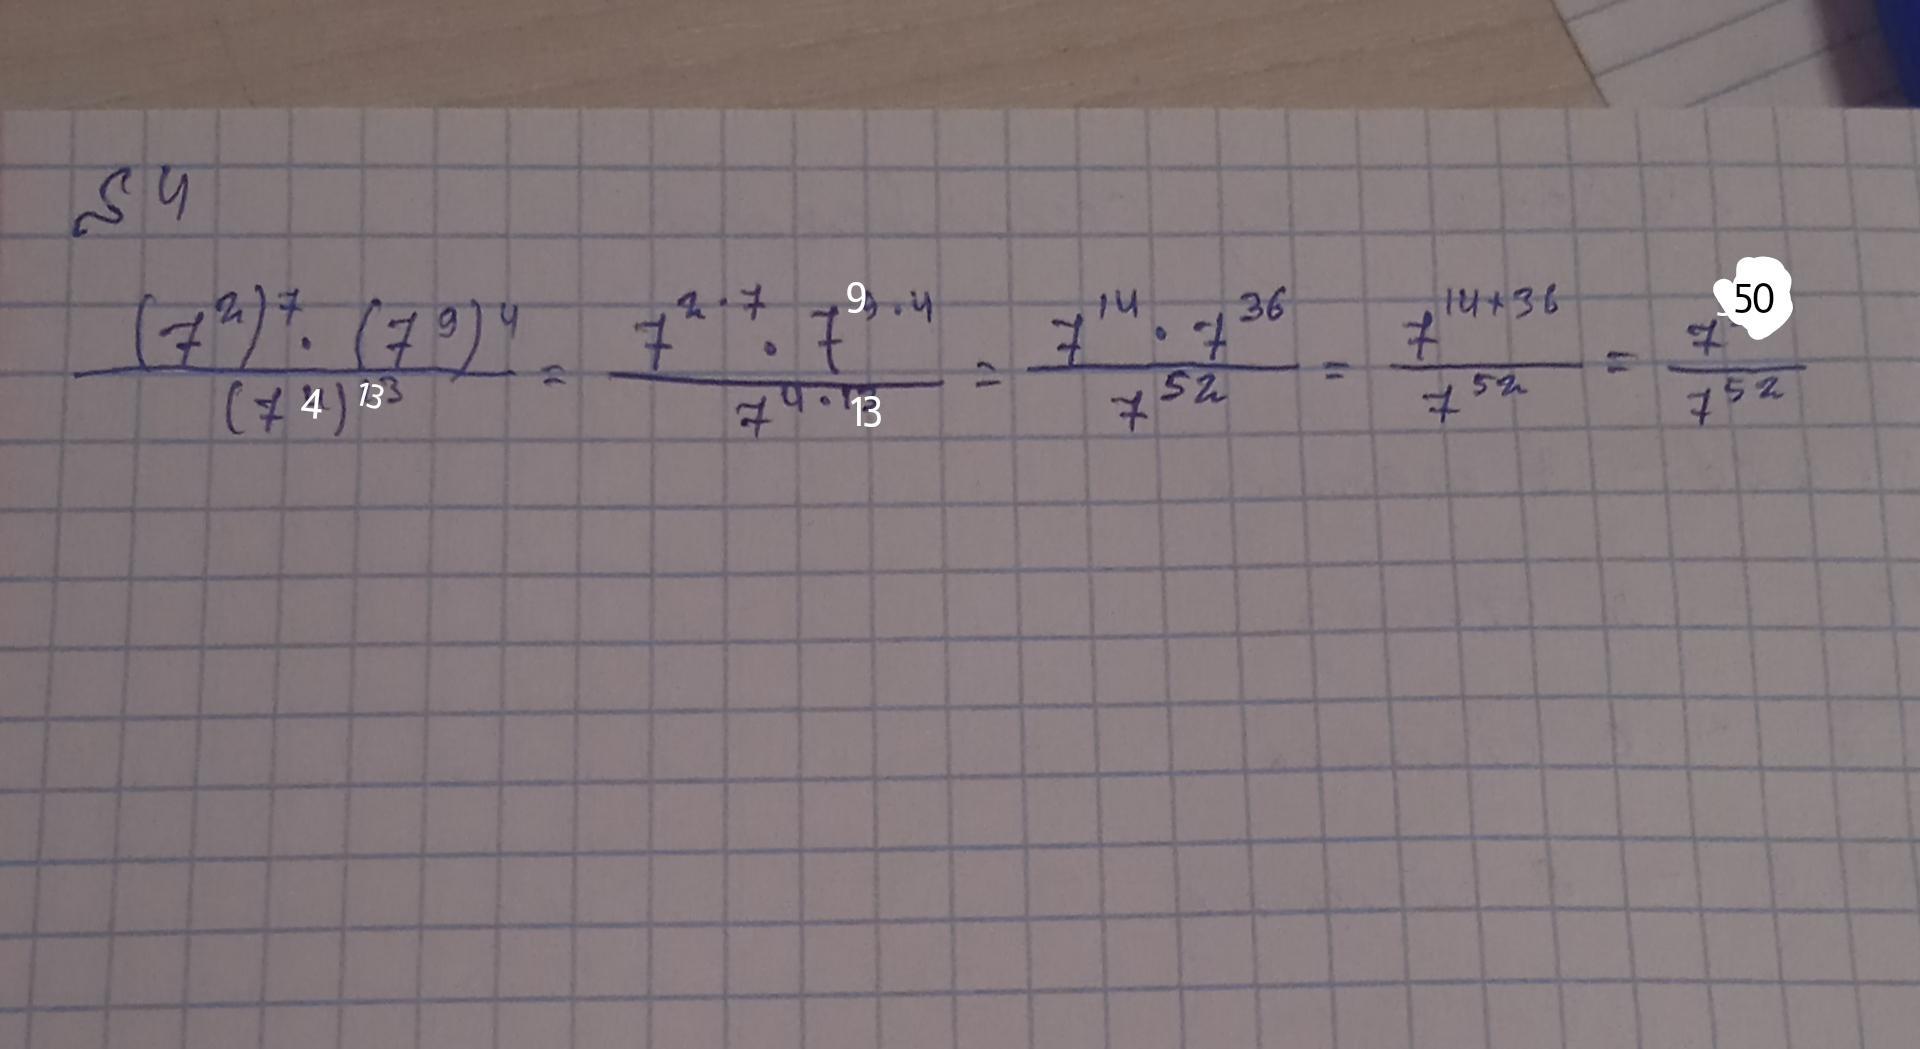 S 4
(7²)⁷ · (7⁹)⁴ / (7⁴)¹³ = 7²·⁷ · 7⁹·⁴ / 7⁴·¹³ = 7¹⁴ · 7³⁶ / 7⁵² = 7¹⁴⁺³⁶ / 7⁵² = 7⁵⁰ / 7⁵²